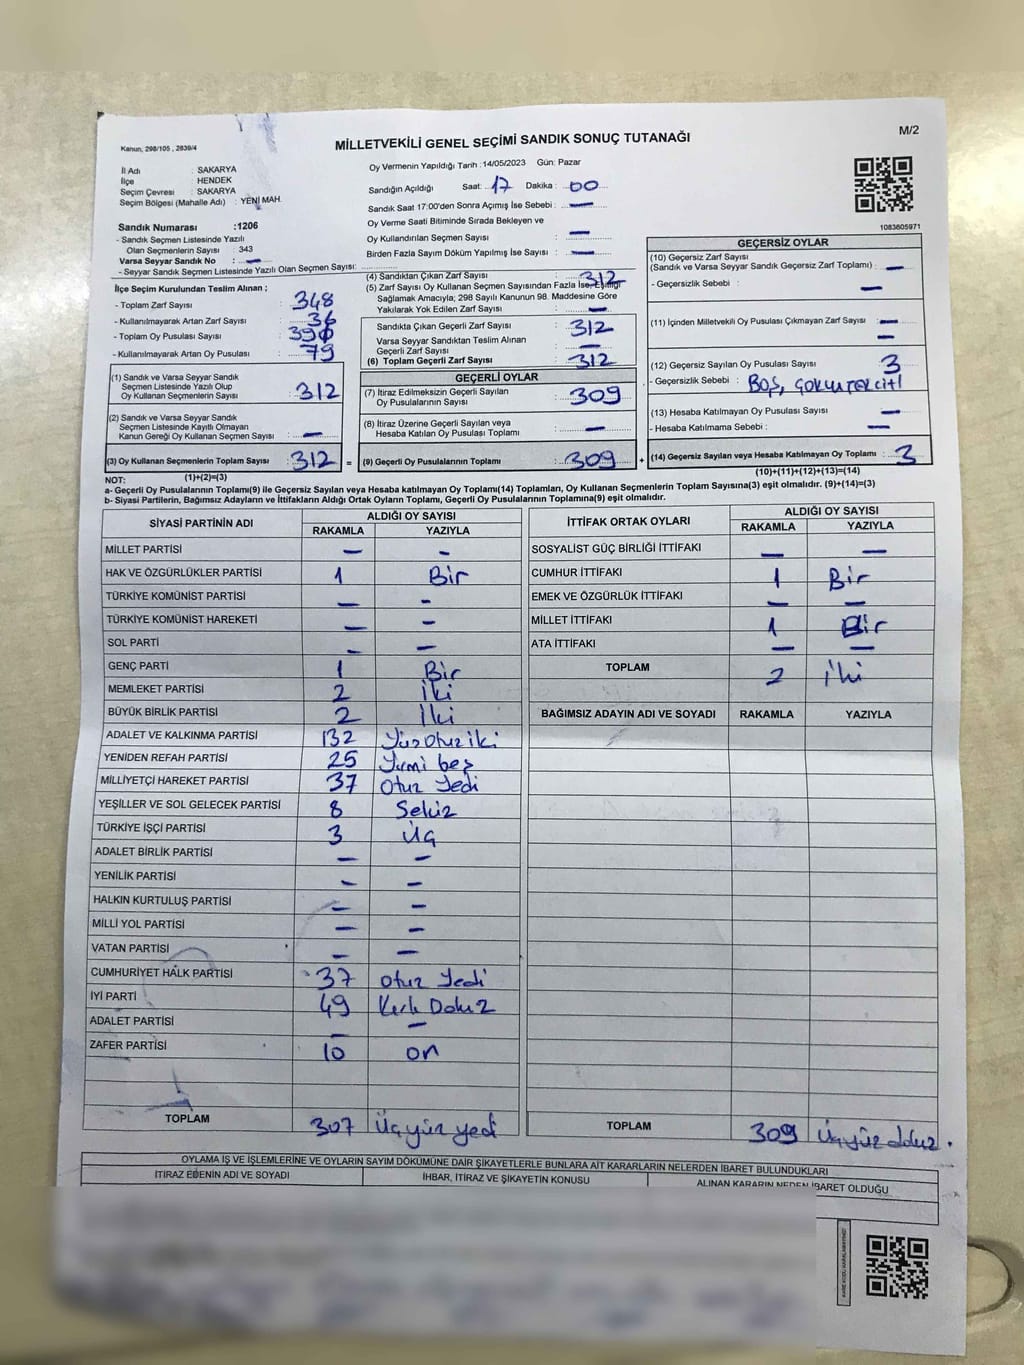 MİLLETVEKİLİ GENEL SEÇİMİ SANDIK SONUÇ TUTANAĞI
M/2
Kanun, 298/105 , 2839/4
İl Adı : SAKARYA
İlçe : HENDEK
Seçim Çevresi : SAKARYA
Seçim Bölgesi (Mahalle Adı) : YENİ MAH.
Sandık Numarası :1206
- Sandık Seçmen Listesinde Yazılı
Olan Seçmenlerin Sayısı : 343
Varsa Seyyar Sandık No : —
- Seyyar Sandık Seçmen Listesinde Yazılı Olan Seçmen Sayısı:
Oy Vermenin Yapıldığı Tarih :14/05/2023 Gün: Pazar
Sandığın Açıldığı Saat: 17 Dakika : 00
Sandık Saat 17:00'den Sonra Açımış İse Sebebi : —
Oy Verme Saati Bitiminde Sırada Bekleyen ve
Oy Kullandırılan Seçmen Sayısı : —
Birden Fazla Sayım Döküm Yapılmış İse Sayısı : —
1083605971
İlçe Seçim Kurulundan Teslim Alınan ;
- Toplam Zarf Sayısı : 348
- Kullanılmayarak Artan Zarf Sayısı : 36
- Toplam Oy Pusulası Sayısı : 390
- Kullanılmayarak Artan Oy Pusulası : 79
(1) Sandık ve Varsa Seyyar Sandık
Seçmen Listesinde Yazılı Olup
Oy Kullanan Seçmenlerin Sayısı : 312
(2) Sandık ve Varsa Seyyar Sandık
Seçmen Listesinde Kayıtlı Olmayan
Kanun Gereği Oy Kullanan Seçmen Sayısı : —
(3) Oy Kullanan Seçmenlerin Toplam Sayısı : 312 =
(1)+(2)=(3)
(4) Sandıktan Çıkan Zarf Sayısı : 312
(5) Zarf Sayısı Oy Kullanan Seçmen Sayısından Fazla İse, Eşitliği
Sağlamak Amacıyla; 298 Sayılı Kanunun 98. Maddesine Göre
Yakılarak Yok Edilen Zarf Sayısı : —
Sandıkta Çıkan Geçerli Zarf Sayısı : 312
Varsa Seyyar Sandıktan Teslim Alınan
Geçerli Zarf Sayısı : —
(6) Toplam Geçerli Zarf Sayısı : 312
GEÇERLİ OYLAR
(7) İtiraz Edilmeksizin Geçerli Sayılan
Oy Pusulalarının Sayısı : 309
(8) İtiraz Üzerine Geçerli Sayılan veya
Hesaba Katılan Oy Pusulası Toplamı : —
(9) Geçerli Oy Pusulalarının Toplamı : 309 +
GEÇERSİZ OYLAR
(10) Geçersiz Zarf Sayısı
(Sandık ve Varsa Seyyar Sandık Geçersiz Zarf Toplamı) : —
- Geçersizlik Sebebi : —
(11) İçinden Milletvekili Oy Pusulası Çıkmayan Zarf Sayısı : —
—
(12) Geçersiz Sayılan Oy Pusulası Sayısı : 3
- Geçersizlik Sebebi : BOŞ,
(13) Hesaba Katılmayan Oy Pusulası Sayısı : —
- Hesaba Katılmama Sebebi : —
(14) Geçersiz Sayılan veya Hesaba Katılmayan Oy Toplamı : 3
(10)+(11)+(12)+(13)=(14)
NOT:
a- Geçerli Oy Pusulalarının Toplamı(9) ile Geçersiz Sayılan veya Hesaba katılmayan Oy Toplamı(14) Toplamları, Oy Kullanan Seçmenlerin Toplam Sayısına(3) eşit olmalıdır. (9)+(14)=(3)
b- Siyasi Partilerin, Bağımsız Adayların ve İttifakların Aldığı Ortak Oyların Toplamı, Geçerli Oy Pusulalarının Toplamına(9) eşit olmalıdır.
SİYASİ PARTİNİN ADI ALDIĞI OY SAYISI
RAKAMLA YAZIYLA
MİLLET PARTİSİ — —
HAK VE ÖZGÜRLÜKLER PARTİSİ 1 Bir
TÜRKİYE KOMÜNİST PARTİSİ — —
TÜRKİYE KOMÜNİST HAREKETİ — —
SOL PARTİ — —
GENÇ PARTİ 1 Bir
MEMLEKET PARTİSİ 2 İki
BÜYÜK BİRLİK PARTİSİ 2 İki
ADALET VE KALKINMA PARTİSİ 132 Yüzotuz iki
YENİDEN REFAH PARTİSİ 25 Yirmi beş
MİLLİYETÇİ HAREKET PARTİSİ 37 Otuz Yedi
YEŞİLLER VE SOL GELECEK PARTİSİ 8 Sekiz
TÜRKİYE İŞÇİ PARTİSİ 3 Üç
ADALET BİRLİK PARTİSİ — —
YENİLİK PARTİSİ — —
HALKIN KURTULUŞ PARTİSİ — —
MİLLİ YOL PARTİSİ — —
VATAN PARTİSİ — —
CUMHURİYET HALK PARTİSİ 37 Otuz Yedi
İYİ PARTİ 49 Kırk Dokuz
ADALET PARTİSİ — —
ZAFER PARTİSİ 10 on
TOPLAM 307 Üçyüz yedi
İTTİFAK ORTAK OYLARI ALDIĞI OY SAYISI
RAKAMLA YAZIYLA
SOSYALİST GÜÇ BİRLİĞİ İTTİFAKI — —
CUMHUR İTTİFAKI 1 Bir
EMEK VE ÖZGÜRLÜK İTTİFAKI — —
MİLLET İTTİFAKI 1 Bir
ATA İTTİFAKI — —
TOPLAM 2 İki
BAĞIMSIZ ADAYIN ADI VE SOYADI RAKAMLA YAZIYLA
TOPLAM 309 Üçyüz dokuz.
OYLAMA İŞ VE İŞLEMLERİNE VE OYLARIN SAYIM DÖKÜMÜNE DAİR ŞİKAYETLERLE BUNLARA AİT KARARLARIN NELERDEN İBARET BULUNDUKLARI
İTİRAZ EDENİN ADI VE SOYADI İHBAR, İTİRAZ VE ŞİKAYETİN KONUSU ALINAN KARARIN NEDEN İBARET OLDUĞU